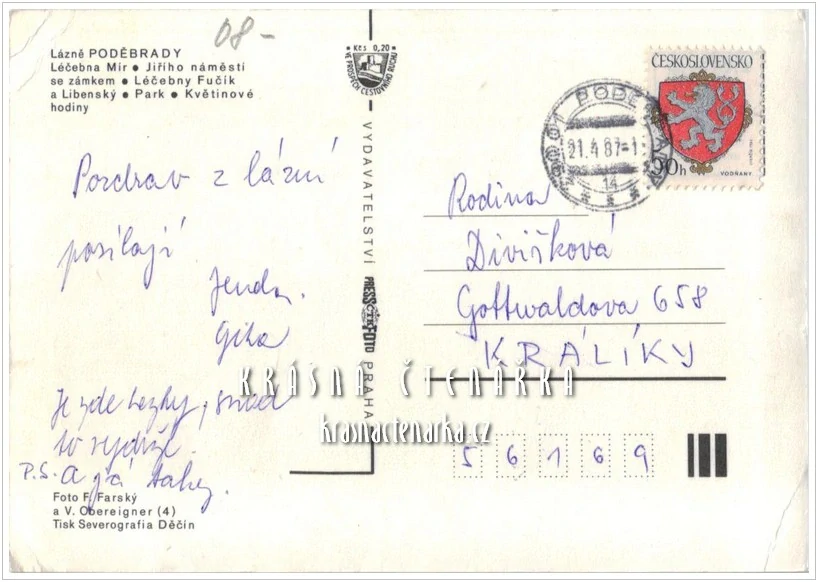 08-
Lázně PODĚBRADY
Léčebna Mír ● Jiřího náměstí
se zámkem ● Léčebny Fučík
a Libenský ● Park ● Květinové
hodiny
Kčs 0,20
VE PROSPĚCH CESTOVNÍHO RUCHU
ČESKOSLOVENSKO
90h
VODŇANY
290 01 PODĚBRADY
21.4.87-1
14
Pozdrav z lázní
posílají
Jenda.
Gita
Je zde hezky, snad
to vydrží.
P.S. A já taky.
VYDAVATELSTVÍ PRESSFOTO PRAHA
Rodina
Divišková
Gottwaldova 658
KRÁLÍKY
56169
KRÁSNÁ ČTENÁRKA
krasnactenarka.cz
Foto F. Farský
a V. Obereigner (4)
Tisk Severografia Děčín